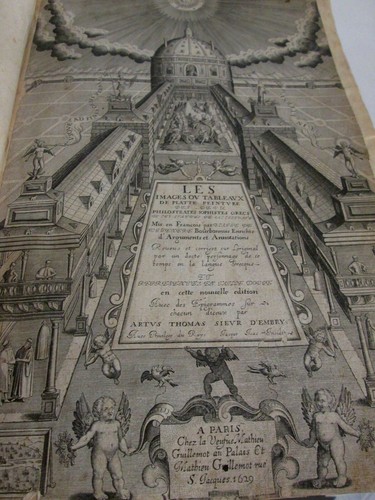 LES
IMAGES OV TABLEAVX
DE PLATTE PEINTVRE
PHILOSTRATES SOPHISTES GRECS
Mis en Francois par BLAISE DE
VIGENERE Bourbonnois Enrichis
d'Arguments et Annotations
Reueus et corrigez sur l'original
par un docte personnage de ce
temps en la langue Grecque
ET
en cette nouuelle edition
Auec des Epigrammes sur
chacun d'iceux par
ARTVS THOMAS SIEVR D'EMBRY
Auec Priuilege du Roy
A PARIS,
Chez la Veufue Mathieu
Guillemot au Palais Et
Mathieu Guillemot rue
S. Jacques. 1629